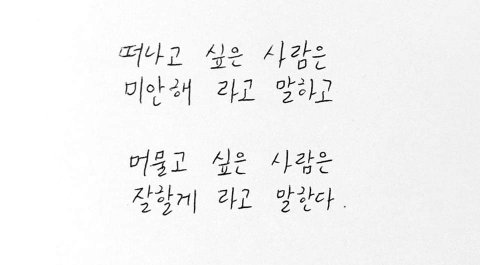 떠나고 싶은 사람은
미안해 라고 말하고
머물고 싶은 사람은
잘할게 라고 말한다.